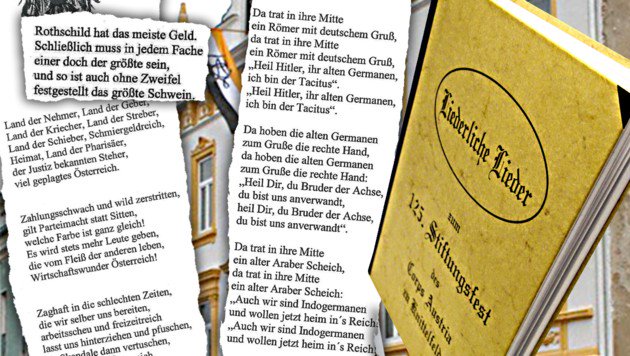 Rothschild hat das meiste Geld.
Schließlich muss in jedem Fache
einer doch der größte sein,
und so ist auch ohne Zweifel
festgestellt das größte Schwein.
Land der Nehmer, Land der Geber,
Land der Kriecher, Land der Streber,
Land der Schieber, Schmiergeldreich,
Heimat, Land der Pharisäer,
der Justiz bekannten Steher,
viel geplagtes Österreich.
Zahlungsschwach und wild zerstritten,
gilt Parteimacht statt Sitten,
welche Farbe ist ganz gleich!
Es wird stets mehr Leute geben,
die vom Fleiß der anderen leben,
Wirtschaftswunder Österreich!
Zaghaft in die schlechten Zeiten,
die wir selber uns bereiten,
arbeitsscheu und freizeitreich
lasst uns hinterziehen und pfuschen,
Skandale dann vertuschen,
Da trat in ihre Mitte
ein Römer mit deutschem Gruß,
da trat in ihre Mitte
ein Römer mit deutschem Gruß,
„Heil Hitler, ihr alten Germanen,
ich bin der Tacitus“.
„Heil Hitler, ihr alten Germanen,
ich bin der Tacitus“.
Da hoben die alten Germanen
zum Gruße die rechte Hand,
da hoben die alten Germanen
zum Gruße die rechte Hand:
„Heil Dir, du Bruder der Achse,
du bist uns anverwandt,
heil Dir, du Bruder der Achse,
du bist uns anverwandt“.
Da trat in ihre Mitte
ein alter Araber Scheich,
da trat in ihre Mitte
ein alter Araber Scheich:
„Auch wir sind Indogermanen
und wollen jetzt heim in´s Reich.
„Auch wir sind Indogermanen
und wollen jetzt heim in´s Reich
Liederliche Lieder
zum
125. Stiftungsfest
des
Corps Austria